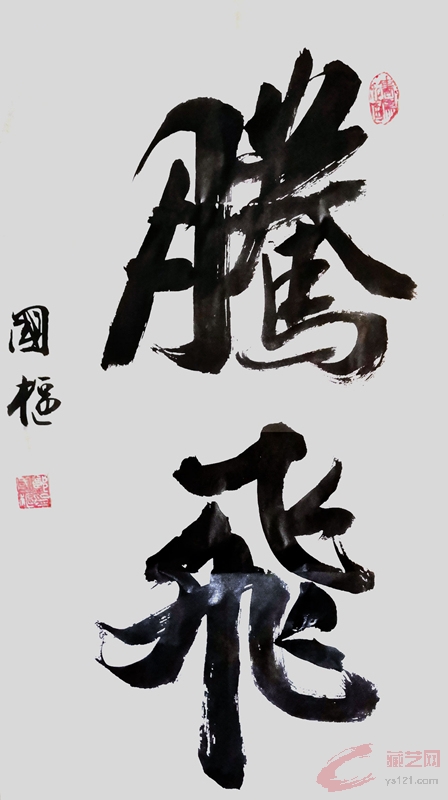 騰飛
國樞
藏艺网
ys121.com